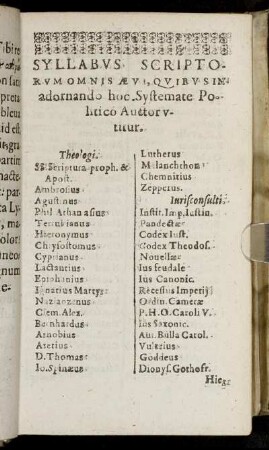 SYLLABVS, SCRIPTO-
RVM OMNIS ÆVI, QVIBVS IN
adornando hoc Systemate Po-
litico Auctor v-
titur.
Theologi.
SS. Scriptura proph. &
Apost.
Ambrosius
Agustinus
Phil Athanasius
Tertulianus
Hieronymus
Chrysostomus
Cyprianus
Lactantius
Epiphanius
Ignatius Martyr
Nazianzenus
Clem. Alex.
Bernhardus
Arnobius
Aretius
D. Thomas
Io. Spinæus
Lutherus
Melanchthon
Chemnitius
Zepperus.
Iurisconsulti.
Instit. Imp. Iustin.
Pandectæ
Codex Iust.
Codex Theodos.
Novellæ
Ius feudale
Ius Canonic.
Recessus Imperij
Ordin. Cameræ
P. H. O. Caroli V.
Ius Saxonic.
Aur. Bulla Carol.
Vulteius
Goddeus
Dionys. Gothofr.
Hie-